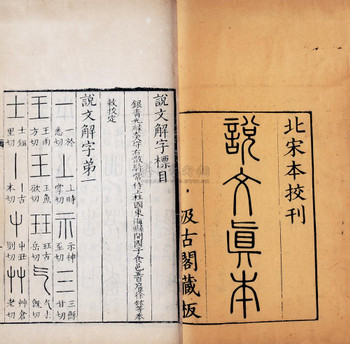 北宋本校刊
說文真本
汲古閣藏版
說文解字標目
銀青光祿大夫守右散騎常侍上柱國東海縣開國子食邑五百戶臣徐鉉等奉
敕校定
說文解字第一
一於悉切 上時掌切 示神至切 三穌甘切
王雨方切 玉魚欲切 玨古岳切 气去旣切
士鉏里切 丨古本切 屮丑列切 艸倉老切